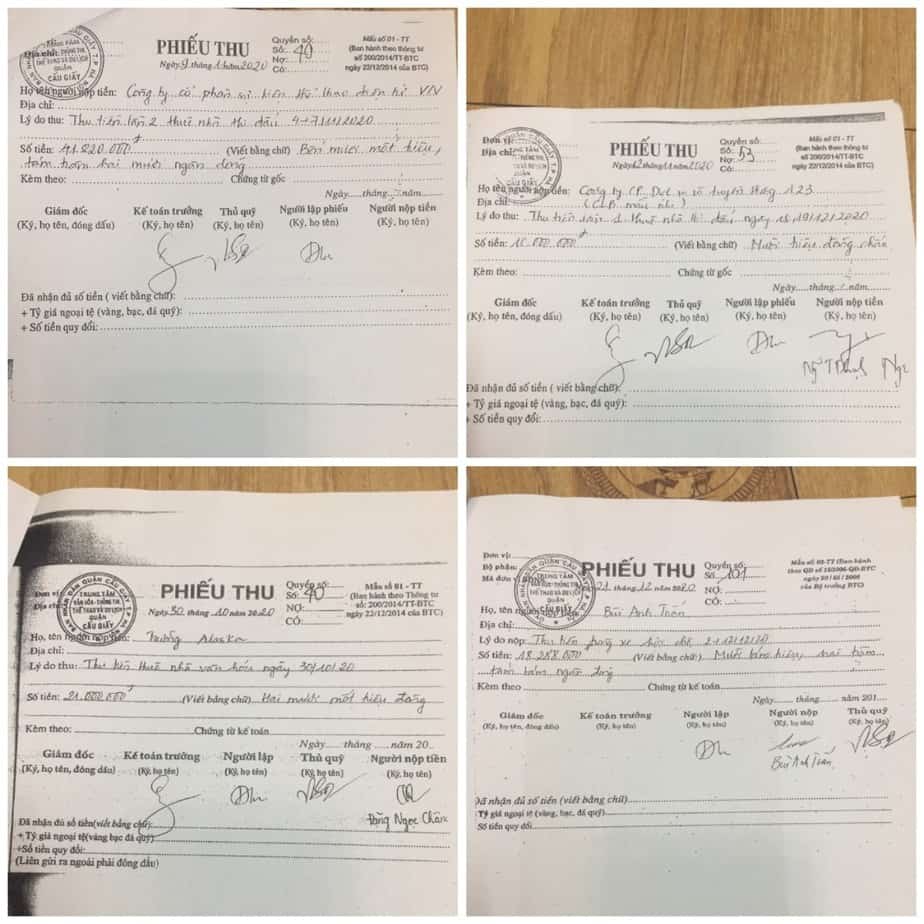 PHIẾU THU
Địa chỉ:
TRUNG TÂM
THỂ THAO VÀ DU LỊCH
QUẬN
CẦU GIẤY
Ngày tháng năm 2020
Quyển số:
Số: 40
Nợ:
Có:
Mẫu số 01 - TT
(Ban hành theo thông tư
số 200/2014/TT-BTC
ngày 22/12/2014
của BTC)
Họ tên người nộp tiền: Công ty cổ phần sự kiện thể thao VN
Địa chỉ:
Lý do thu: Thu tiền lần 2 thuê nhà thi đấu 4+7/11/2020
Số tiền: 41.220.000đ (Viết bằng chữ) Bốn mươi mốt triệu,
hai trăm hai mươi ngàn đồng
Kèm theo: Chứng từ gốc
Ngày tháng năm
Giám đốc Kế toán trưởng Thủ quỹ Người lập phiếu Người nộp tiền
(Ký, họ tên, đóng dấu) (Ký, họ tên) (Ký, họ tên) (Ký, họ tên) (Ký, họ tên)
Đã nhận đủ số tiền ( viết bằng chữ):
+ Tỷ giá ngoại tệ (vàng, bạc, đá quý):
+ Số tiền quy đổi:
Đơn vị:
Địa chỉ:
PHIẾU THU
Ngày 12 tháng 11 năm 2020
Quyển số:
Số: 53
Nợ:
Mẫu số 01 - TT
(Ban hành theo thông tư
số 200/2014/TT-BTC
ngày 22/12/2014
của BTC)
Họ tên người nộp tiền: Công ty CP 123
Địa chỉ
Lý do thu: Thu tiền lần 1 thuê nhà thi đấu ngày 19/12/2020
Số tiền: 10.000.000đ (Viết bằng chữ) Mười triệu đồng chẵn
Kèm theo: Chứng từ gốc
Ngày tháng năm
Giám đốc Kế toán trưởng Thủ quỹ Người lập phiếu Người nộp tiền
(Ký, họ tên, đóng dấu) (Ký, họ tên) (Ký, họ tên) (Ký, họ tên) (Ký, họ tên)
Đã nhận đủ số tiền ( viết bằng chữ):
+ Tỷ giá ngoại tệ (vàng, bạc, đá quý):
+ Số tiền quy đổi:
Đơn vị:
Địa chỉ:
ỦY BAN NHÂN DÂN QUẬN CẦU GIẤY
TRUNG TÂM
VĂN HÓA - THÔNG TIN
THỂ THAO VÀ DU LỊCH
QUẬN
CẦU GIẤY
PHIẾU THU
Ngày 30 tháng 10 năm 2020
Quyển số:
Số: 40
NỢ:
CÓ:
Mẫu số 01 - TT
(Ban hành theo Thông tư
số: 200/2014/TT-BTC
ngày 22/12/2014 BTC)
Họ, tên người nộp tiền: Trường Alaska
Địa chỉ:
Lý do thu: Thu tiền thuê nhà văn hóa ngày 30/10/20
Số tiền: 21.000.000đ (Viết bằng chữ) Hai mươi mốt triệu đồng
Kèm theo: Chứng từ kế toán
Ngày tháng năm 20
Giám đốc Kế toán trưởng Người lập Thủ quỹ Người nộp tiền
(Ký, họ tên, đóng dấu) (Ký, họ tên) (Ký, họ tên) (Ký, họ tên) (Ký, họ tên)
Đặng Ngọc Châu
Đã nhận đủ số tiền(viết bằng chữ):
+ Tỷ giá ngoại tệ(vàng bạc đá quý)
+Số tiền quy đổi:
(Liên gửi ra ngoài phải đóng dấu)
Đơn vị:
Bộ phận:
Mã đơn vị
TRUNG TÂM
VĂN HÓA - THÔNG TIN
THỂ THAO VÀ DU LỊCH
QUẬN
CẦU GIẤY
PHIẾU THU
21 tháng 12 năm 2020
Quyển số:
Số: 101
NỢ:
CÓ:
Mẫu số 02-TT (Ban hành
theo QĐ số 15/2006-QĐ-BTC
ngày 20/03/2006
của Bộ trưởng BTC)
Họ, tên người nộp tiền: Bùi Anh Tuấn
Địa chỉ:
Lý do nộp: Thu tiền trông xe
Số tiền: 18.288.000 (Viết bằng chữ) Mười tám triệu, hai trăm
tám tám ngàn đồng
Kèm theo Chứng từ kế toán
Ngày tháng năm 201
Giám đốc Kế toán trưởng Người lập Người nộp Thủ quỹ
(Ký, họ tên, đóng dấu) (Ký, họ tên) (Ký, họ tên) (Ký, họ tên) (Ký, họ tên)
Bùi Anh Tuấn
Đã nhận đủ số tiền (viết bằng chữ)
Tỷ giá ngoại tệ (vàng, bạc, đá quý)
Số tiền quy đổi